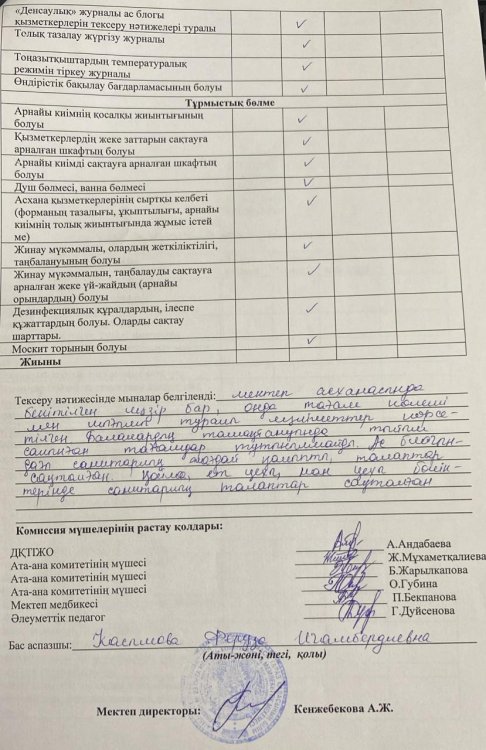 «Денсаулық» журналы ас блогы
қызметкерлерін тексеру нәтижелері туралы
Толық тазалау жүргізу журналы
Тоңазытқыштардың температуралық
режимін тіркеу журналы
Өндірістік бақылау бағдарламасының болуы
Тұрмыстық бөлме
Арнайы киімнің қосалқы жиынтығының
болуы
Қызметкерлердің жеке заттарын сақтауға
арналған шкафтың болуы
Арнайы киімді сақтауға арналған шкафтың
болуы
Душ бөлмесі, ванна бөлмесі
Асхана қызметкерлерінің сыртқы келбеті
(форманың тазалығы, ұқыптылығы, арнайы
киімнің толық жиынтығында жұмыс істей
ме)
Жинау мүкәммалы, олардың жеткіліктілігі,
таңбалануының болуы
Жинау мүкәммалын, таңбалауды сақтауға
арналған жеке үй-жайдың (арнайы
орындардың) болуы
Дезинфекциялық құралдардың, ілеспе
құжаттардың болуы. Оларды сақтау
шарттары.
Москит торының болуы
Жиыны
Тексеру нәтижесінде мыналар белгіленді: мектеп асханасында
бекітілген мәзір бар, онда тағам
мен туралы мәліметтер көрсе-
тілген. Балалардың тыйым
салынған тағамдар Ас блогын-
дағы санитарлық жағдай талаптар
сақталған. ет цехі, нан цехі бөлім-
терінде санитарлық талаптар сақталған
Комиссия мүшелерінің растау қолдары:
ДҚТІЖО А.Андабаева
Ата-ана комитетінің мүшесі Ж.Мұхаметқалиева
Ата-ана комитетінің мүшесі Б.Жарылкапова
Ата-ана комитетінің мүшесі О.Губина
Мектеп медбикесі П.Бекпанова
Әлеуметтік педагог Г.Дуйсенова
Бас аспазшы: Касымова Феруза Игамбердиевна
(Аты-жөні, тегі, қолы)
Мектеп директоры: Кенжебекова А.Ж.